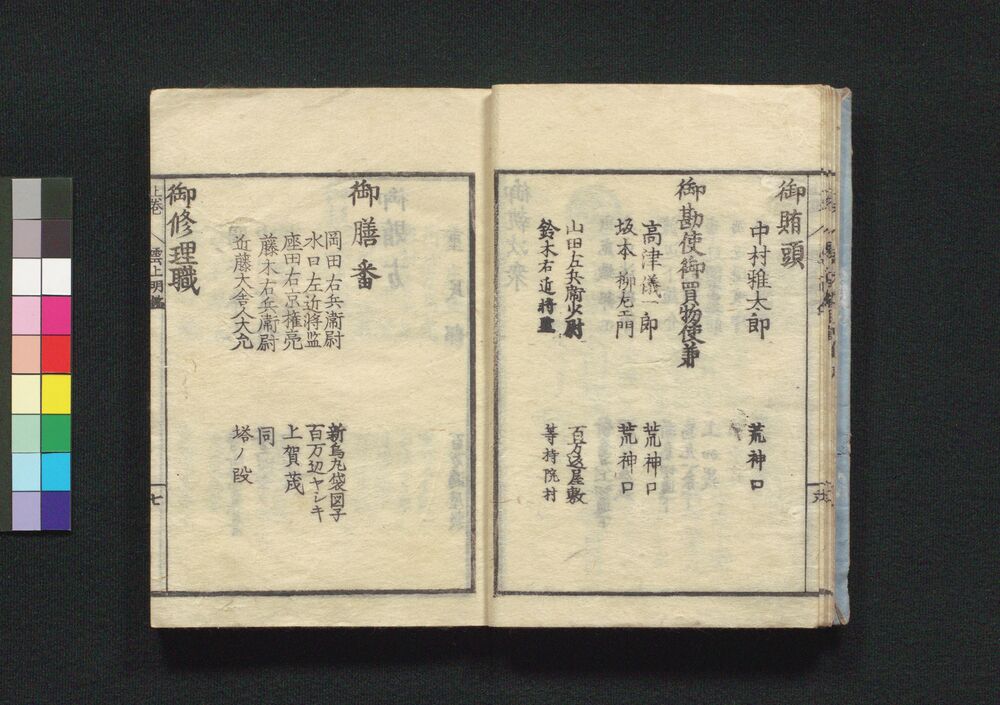 御賄頭
中村雅太郎
荒神口
御勘使御買物使兼
高津儀一郎
荒神口
坂本柳左エ門
荒神口
山田左兵衛少尉
百万辺屋敷
鈴木右近将監
等持院村
御膳番
岡田右兵衛尉
新烏丸袋図子
水口左近将監
百万辺ヤシキ
座田右京権亮
上賀茂
藤木右兵衛尉
同
近藤大舎人大允
塔ノ段
御修理職
上巻
雲上明鑑
七